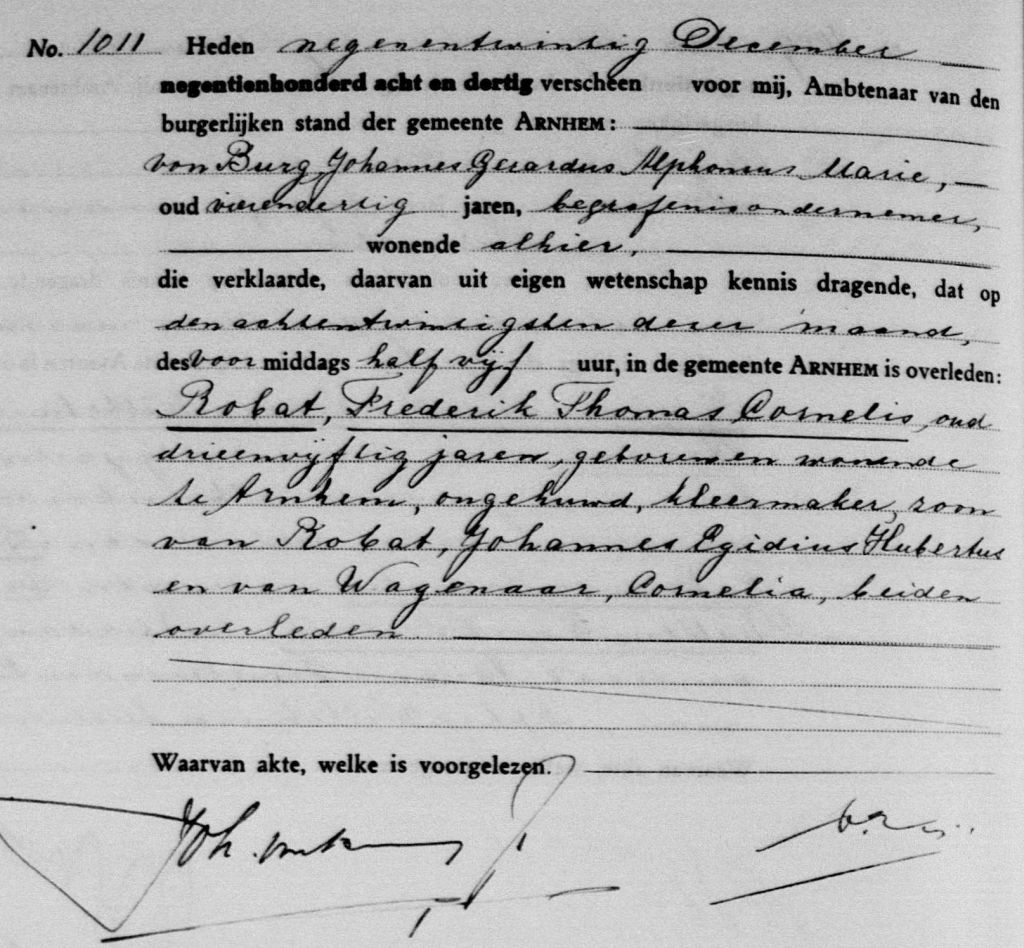 No. 1011 Heden negenentwintig December
negentienhonderd acht en dertig verscheen voor mij, Ambtenaar van den
burgerlijken stand der gemeente ARNHEM:
von Burg, Johannes Gerardus Alphonsus Marie,
oud vierendertig jaren, begrafenisondernemer,
wonende alhier,
die verklaarde, daarvan uit eigen wetenschap kennis dragende, dat op
den achtentwintigsten dezer maand,
des voor middags half vijf uur, in de gemeente ARNHEM is overleden:
Robat, Frederik Thomas Cornelis, oud
drieenvijftig jaren, geboren en wonende
te Arnhem, ongehuwd, kleermaker, zoon
van Robat, Johannes Egidius Hubertus
en van Wagenaar, Cornelia, beiden
overleden.
Waarvan akte, welke is voorgelezen.
Joh.